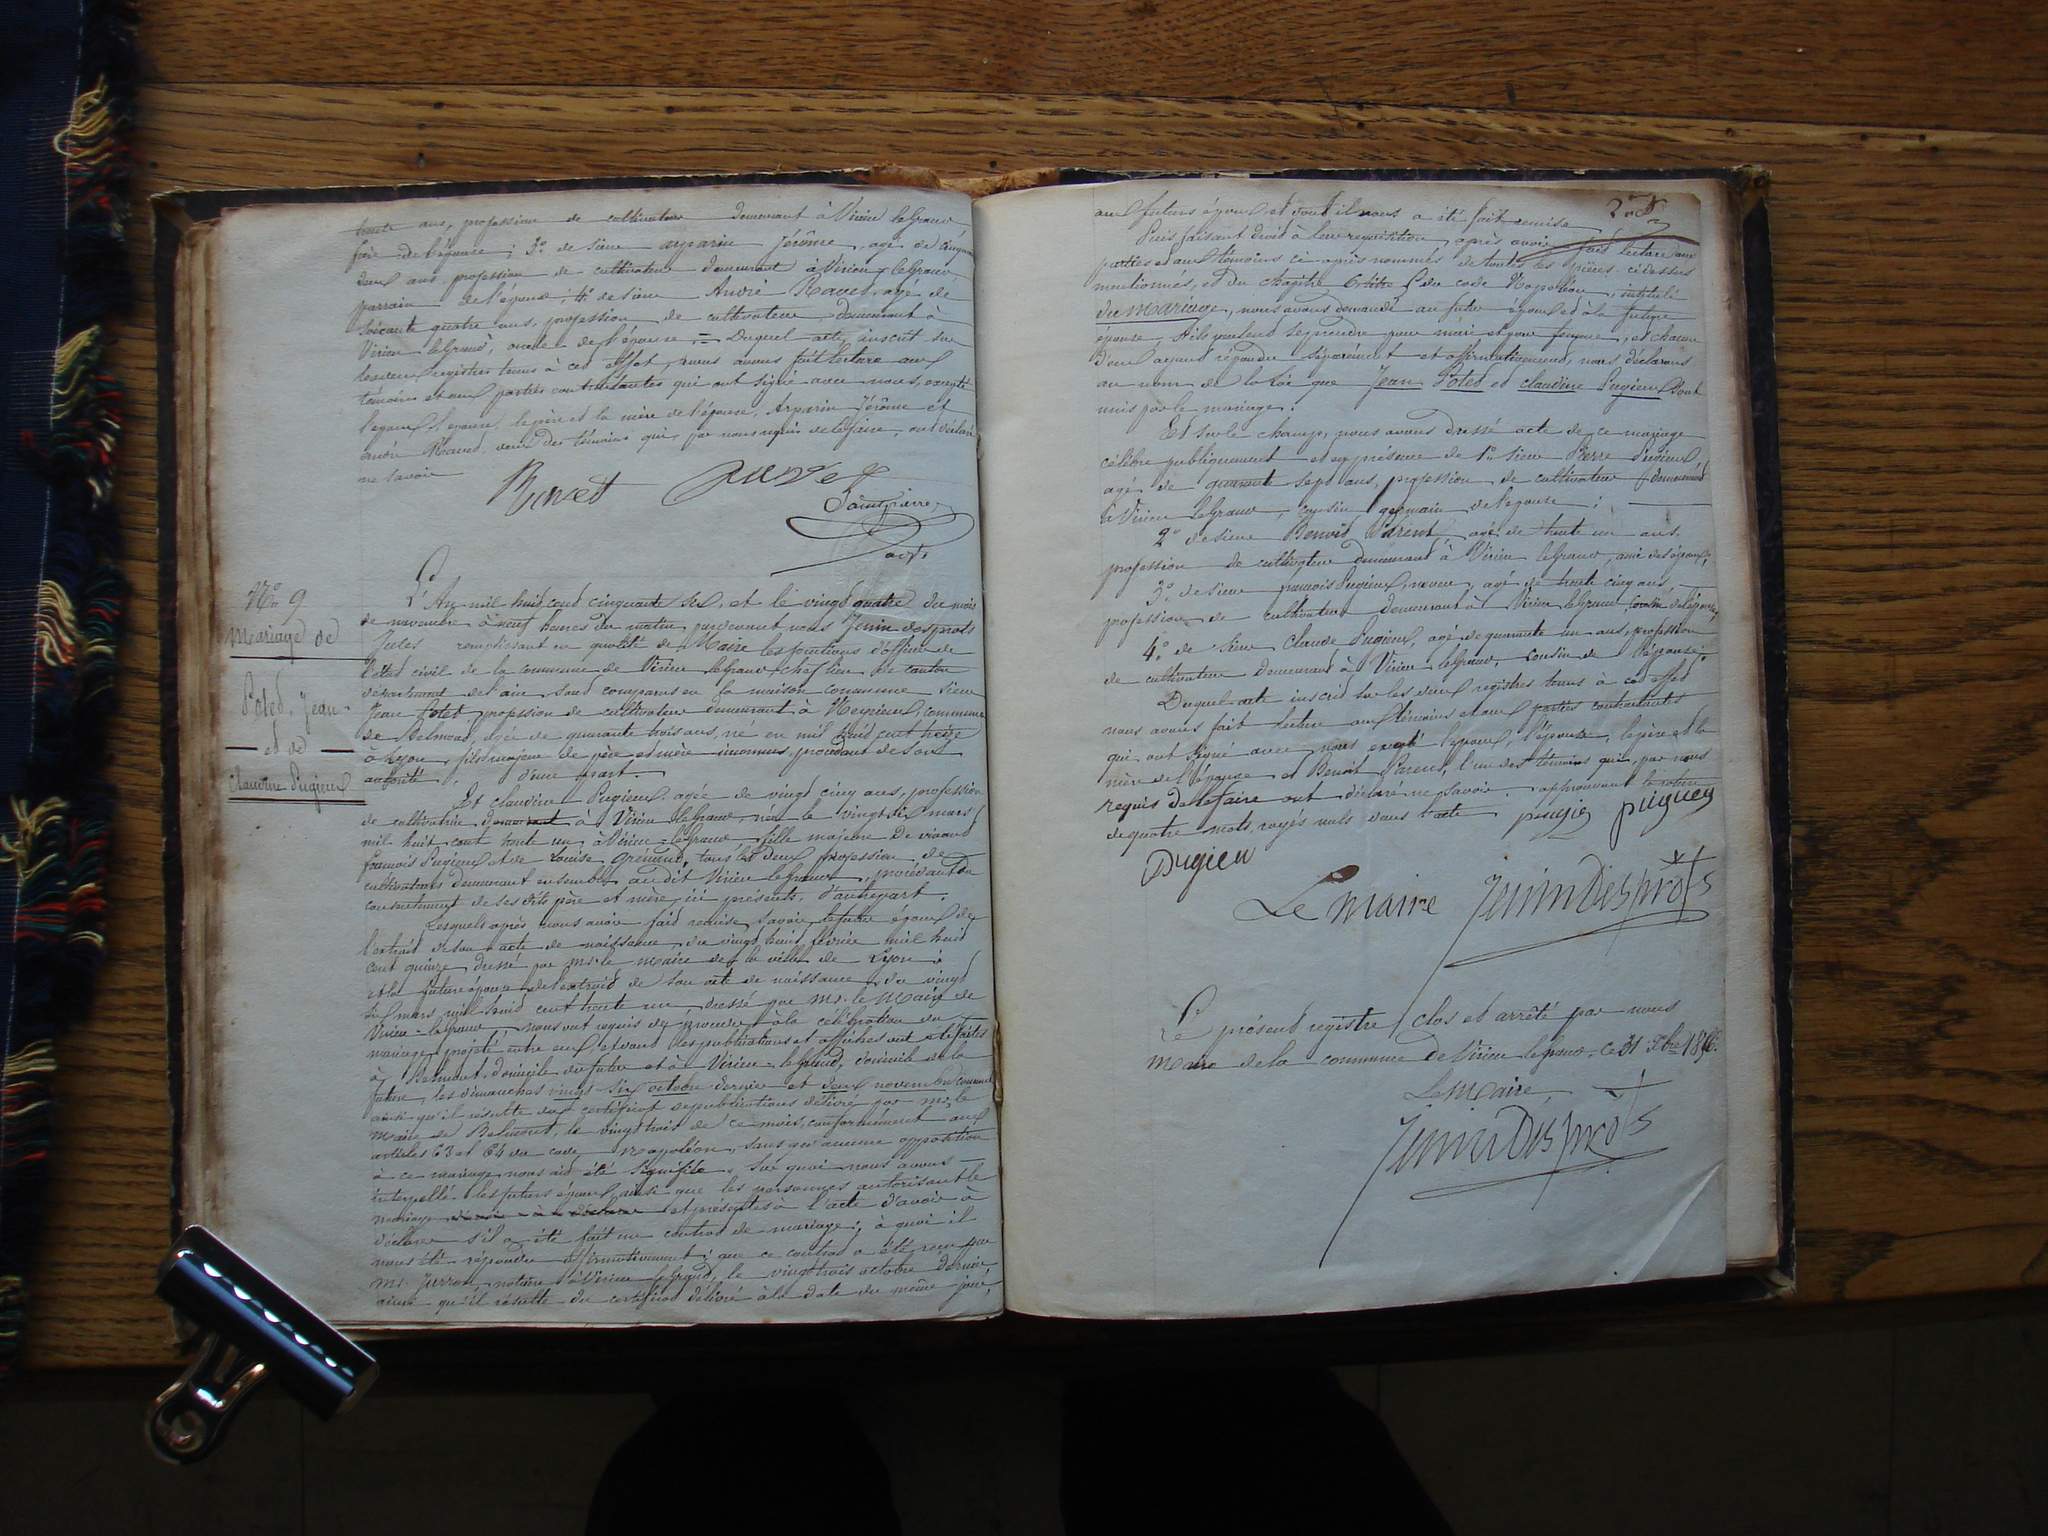 trente ans, profession de cultivateur demeurant à Virieu le Grand
frère de l'épouse ; 3.o de sieur arparin Jérôme, agé de cinquante
deux ans profession de cultivateur demeurant à Virieu le Grand,
parrain de l'épouse ; 4.o de sieur André Ravet, agé de
soixante quatre ans, profession de cultivateur demeurant à
Virieu le Grand, oncle de l'épouse = Duquel acte, inscrit sur
les deux registres tenus à cet effet, nous avons fait lecture aux
témoins et aux parties contractantes qui ont signé avec nous, excepté
l'époux, l'épouse, le père et la mère de l'épouse, Arparin Jérôme et
andré Ravet, deux des témoins qui, par nous requis de le faire, ont déclaré
ne savoir
Saintpierre
N.o 9
Mariage de
Potet, Jean
et de
Claudine Pugieux
L'An mil huit cent cinquante six, et le vingt quatre du mois
de novembre à neuf heures du matin, pardevant nous Jenin desprots
Jules remplissant en qualité de Maire les fonctions d'officier de
l'état civil de la commune de Virieu le Grand, chef lieu de canton
département de l'ain, sont comparus en la maison commune sieur
Jean Potet, profession de cultivateur demeurant à Meyrieux, commune
de Belmont, agé de quarante trois ans, né en mil huit cent treize
à Lyon, fils majeur de père et mère inconnus, procédant de son
autorité, d'une part.
Et Claudine Pugieux, agée de vingt cinq ans, profession
de cultivatrice demeurant à Virieu le Grand née le vingt six mars
mil huit cent trente un à Virieu le Grand fille majeure de vivants
françois Pugieux et de Louise Grémond, tous les deux profession de
cultivateurs demeurant ensemble au dit Virieu le Grand, procédant du
consentement de ses dits père et mère, ici présents, d'autre part.
Lesquels après nous avoir fait remise, savoir, le futur époux de
l'extrait de son acte de naissance du vingt huit février mil huit
cent quinze dressé par Mr. le Maire de la ville de Lyon ;
et la future épouse de l'extrait de son acte de naissance, du vingt
six mars mil huit cent trente un dressé par Mr. le Maire de
Virieu le Grand, nous ont requis de procéder à la célébration du
mariage projeté entre eux, et dont les publications et affiches ont été faites
à Belmont, domicile du futur et à Virieu le Grand, domicile de la
future, les dimanches vingt six octobre dernier et deux novembre courant
ainsi qu'il résulte du certificat de publications délivré par Mr. le
Maire de Belmont, le vingt trois de ce mois, conformément aux
articles 63 et 64 du code Napoléon, sans qu'aucune opposition
à ce mariage nous ait été signifiée. Sur quoi nous avons
interpellé les futurs époux, ainsi que les personnes autorisant le
mariage et présentes à l'acte d'avoir à
déclarer s'il a été fait un contrat de mariage ; à quoi il
nous été répondu affirmativement ; que ce contrat a été reçu par
Mr. Jurron, notaire à Virieu le Grand, le vingt trois octobre dernier
ainsi qu'il résulte du certificat délivré à la date du même jour,
aux futurs époux et dont il nous a été fait remise
Puis faisant droit à leur requisition, après avoir fait lecture aux
parties et aux témoins ci-après nommés de toutes les pièces ci dessus
mentionnées, et du chapitre 6 du code Napoléon, intitulé
du Mariage, nous avons demandé au futur époux et à la future
épouse s'ils veulent se prendre pour mari et pour femme, et chacun
d'eux ayant répondu séparément et affirmativement, nous déclarons
au nom de la Loi que Jean Potet et Claudine Pugieux sont
unis par le mariage.
Et sur le champ, nous avons dressé acte de ce mariage
célébré publiquement et en présence de 1.o sieur Pierre Pugieux,
agé de quarante sept ans, profession de cultivateur demeurant
à Virieu le Grand, cousin germain de l'épouse ;
2.o de sieur Benoît Parent, agé de trente un ans,
profession de cultivateur demeurant à Virieu le Grand, ami des époux,
3.o de sieur françois Pugieux, neveu, agé de trente cinq ans
profession de cultivateur demeurant à Virieu le Grand cousin de l'épouse,
4.o de sieur Claude Pugieux, agé de quarante un ans, profession
de cultivateur demeurant à Virieu le Grand, cousin de l'épouse.
Duquel acte inscrit sur les deux registres tenus à cet effet
nous avons fait lecture aux témoins et aux parties contractantes
qui ont signé avec nous excepté l'époux, l'épouse, le père et la
mère de l'épouse et Benoît Parent, l'un des témoins qui, par nous
requis de le faire ont déclaré ne savoir. approuvant la rature
de quatre mots rayés nuls dans l'acte pugieu pugieux
Pugieu
Le Maire Jenin Desprots
Le présent registre clos et arrêté par nous
Maire de la commune de Virieu le Grand, ce 31 Xbre 1856.
Le Maire,
Jenin Desprots